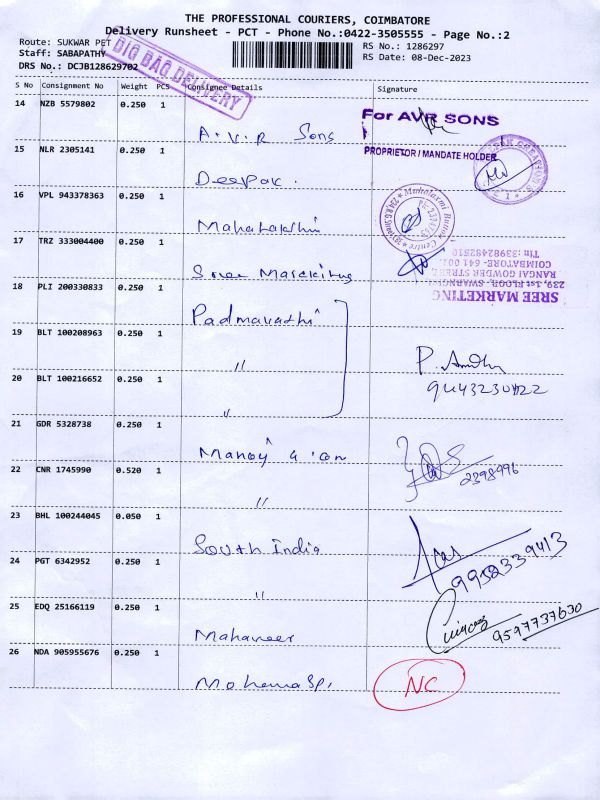 THE PROFESSIONAL COURIERS, COIMBATORE
Delivery Runsheet - PCT - Phone No.:0422-3505555 - Page No.:2
Route: SUKWAR PET
RS No.: 1286297
Staff: SABAPATHY
RS Date: 08-Dec-2023
DRS No.: DCJB128629702
BIG BAG DELIVERY
S No Consignment No Weight PCS Consignee Details Signature
14 NZB 5579802 0.250 1 A.V.R Sons
For AVR SONS
PROPRIETOR / MANDATE HOLDER
15 NLR 2305141 0.250 1 Deepak.
16 VPL 943378363 0.250 1 Mahalakshmi
Mahalaxmi Button Centre
17 TRZ 333004400 0.250 1 Sree Marketing
SREE MARKETING
239, 1st FLOOR, SWARNA
RANGAI GOWDER STREET,
COIMBATORE- 641 001.
Tin: 33982482510
18 PLI 200330833 0.250 1 Padmavathi
19 BLT 100208963 0.250 1 "
P. Andhy
9443230422
20 BLT 100216652 0.250 1 "
21 GDR 5328738 0.250 1 Manoj & Con
22 CNR 1745990 0.520 1 "
2398996
23 BHL 100244045 0.050 1 South India
24 PGT 6342952 0.250 1 "
9952339413
25 EDQ 25166119 0.250 1 Mahaveer
9597737630
26 NDA 905955676 0.250 1
NC